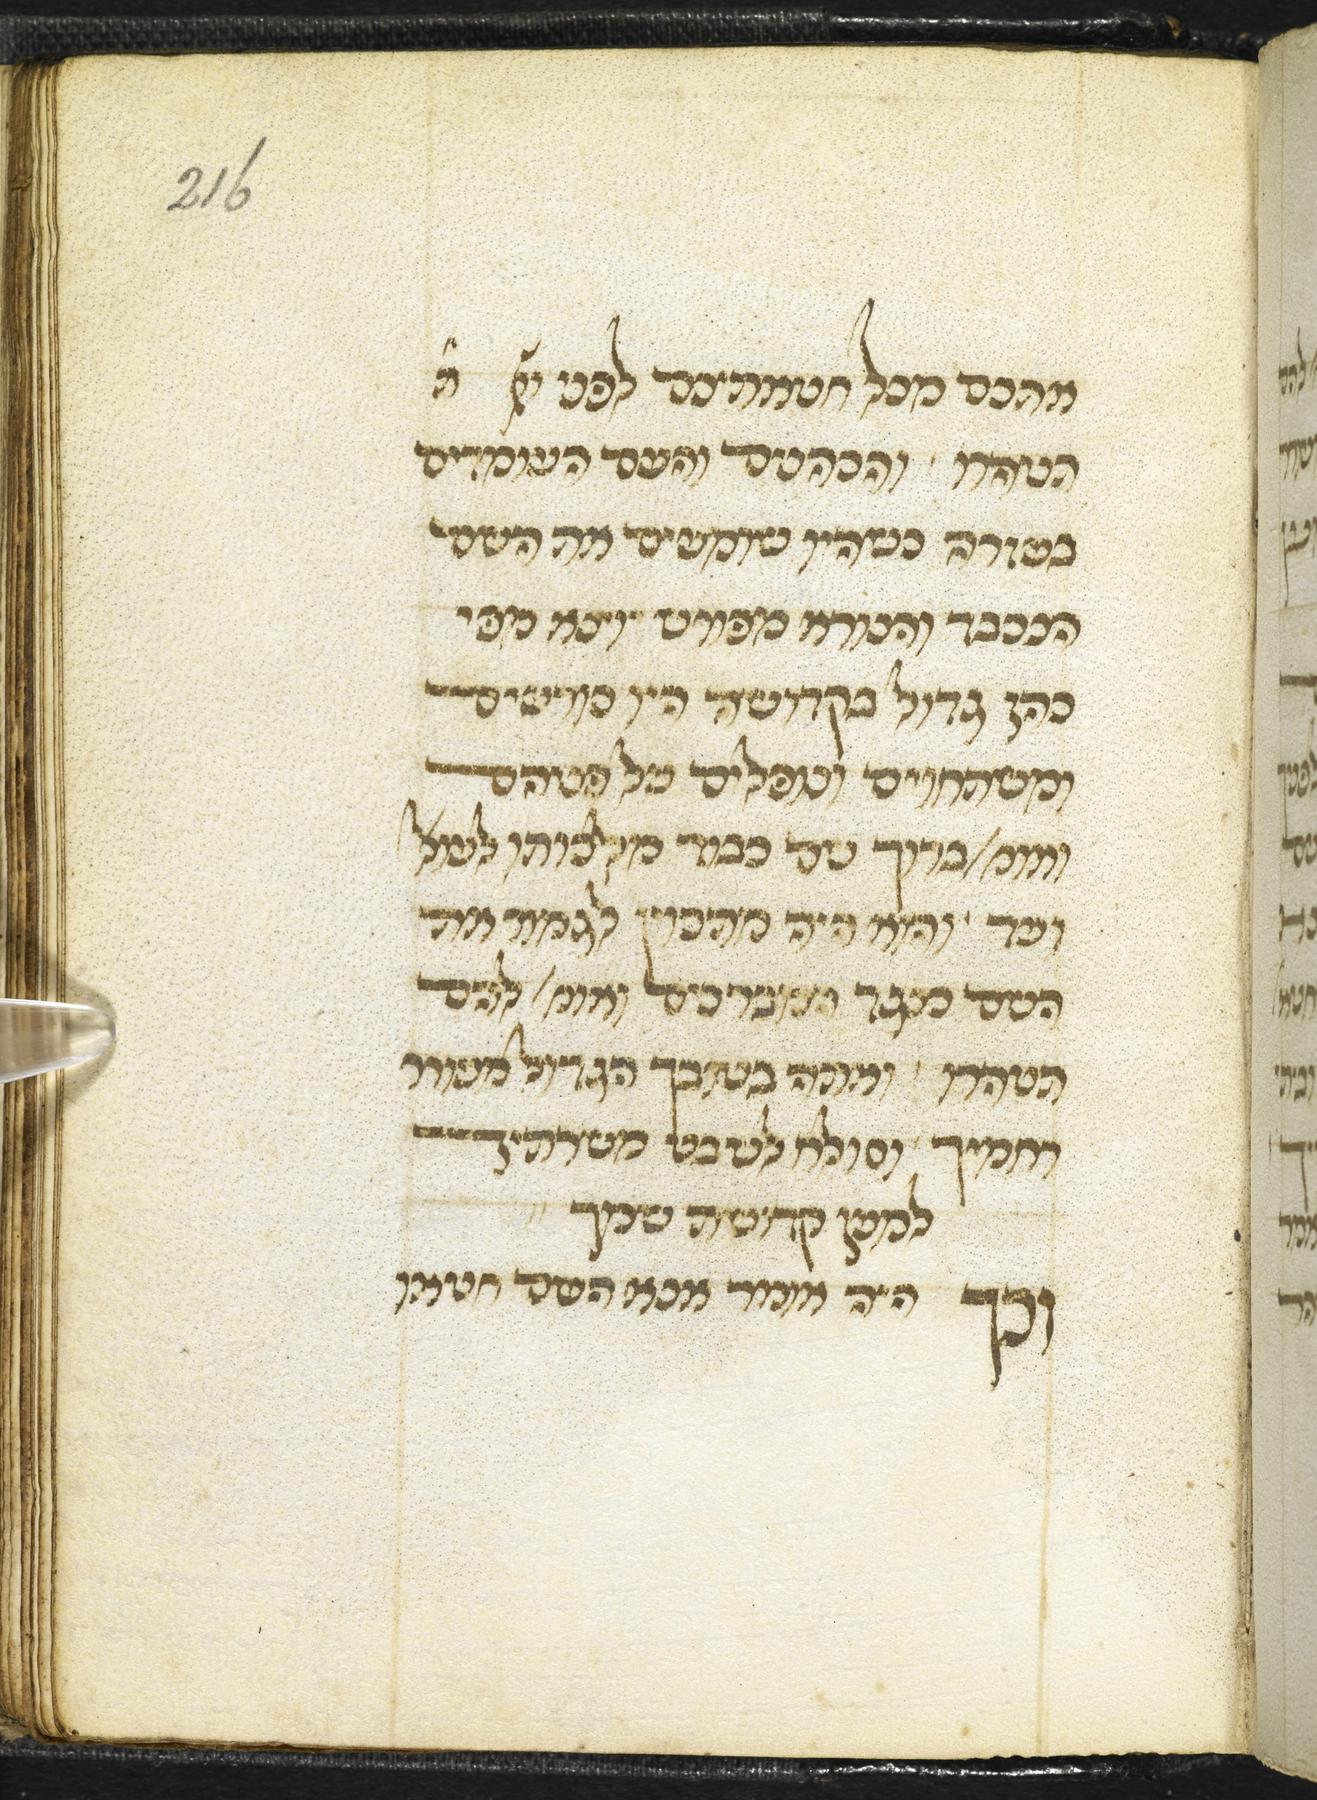 216
אתכם מכל חטאתיכם לפני יי׳ ת
תטהרו והכהנים והעם העומדים
בעזרה כשהיו שומעים את השם
הנכבד והנורא מפורש יוצא מפי
כהן גדול בקדושה היו כורעים
ומשתחוים ונופלים על פניהם
ואומ׳ ברוך שם כבוד מלכותו לעול׳
ועד והוא היה מתכוין לגמור את
השם כנגד המברכים ואומ׳ להם
תטהרו ואתה בטובך הגדול מעורר
רחמיך וסולח לשבט משרתיך
למען קדושת שמך
וכך היה אומר אנא השם חטאתי